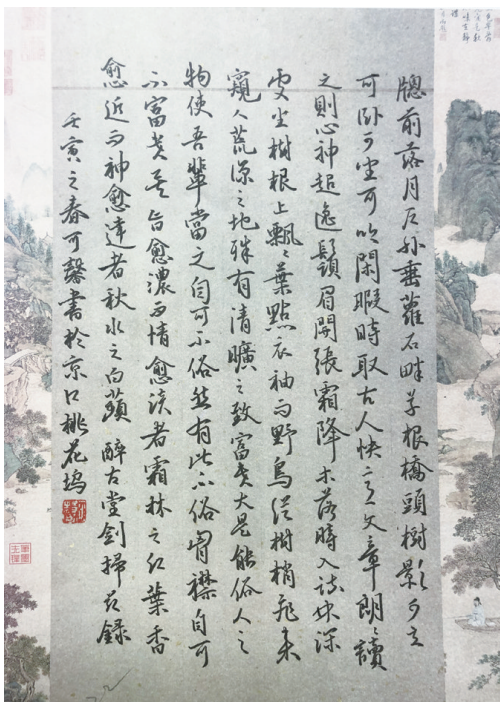 牕前落月戶外垂蘿石畔草根橋頭樹影可立
可卧可坐可吟閑暇時取古人快意文章朗〻讀
之則心神超逸鬚眉開張霜降木落時入疏林深
處坐樹根上飄〻葉點衣袖而野鳥從樹梢飛來
窺人荒涼之地殊有清曠之致富貴大是能俗人之
物使吾輩當之自可不俗然有此不俗胷襟自可
不富貴矣旨愈濃而情愈淡者霜林之紅葉香
愈近而神愈遠者秋水之白蘋醉古堂劍掃節錄
壬寅之春可馨書於京口桃花塢